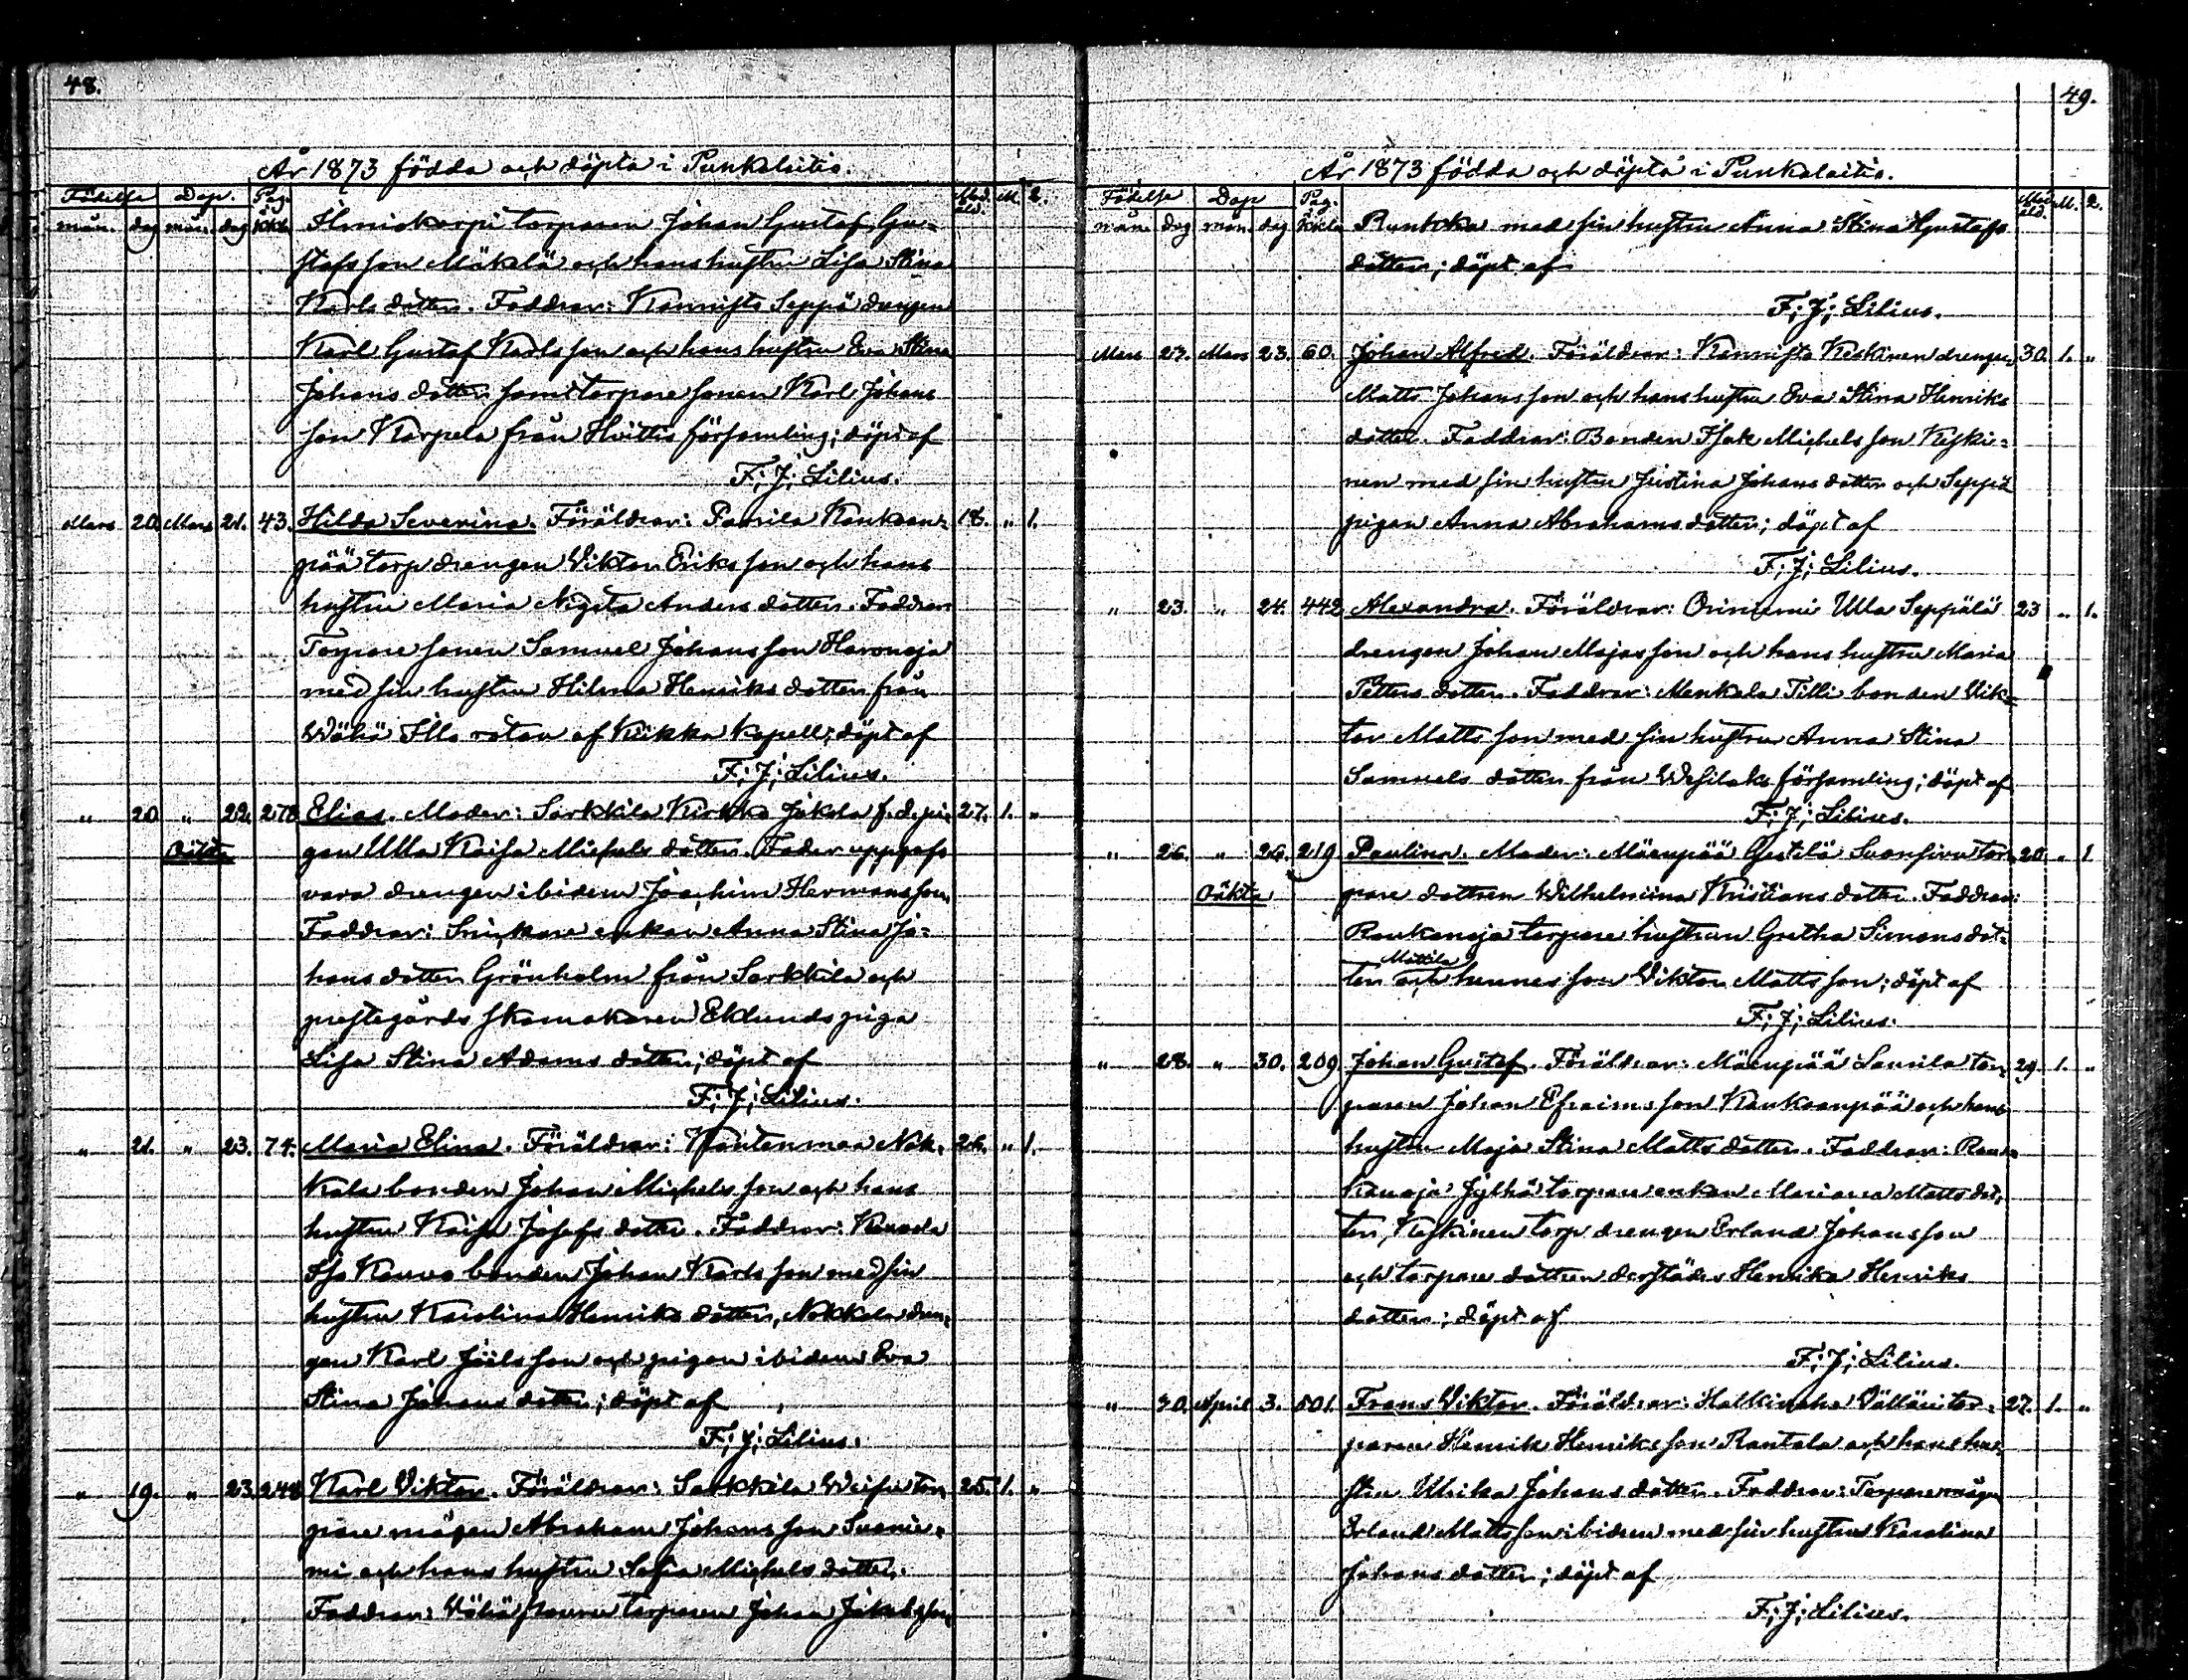 48.
År 1873 födda och döpta i Punkalaitio.
Födelse Dop. Pag. Mod. M. Q.
mån. dag mån. dag i kkb. åld.
torparen Johan Gustaf Gu-
stafsson Mäkelä och hans hustru Lisa Stina
Karlsdotter. Faddrar: Kannisto Seppä drengen
Karl Gustaf Karlsson och hans hustru Eva Stina
Johansdotter samt torparesonen Karl Johans
son Karpela från Hvittis församling; döpt af
F; J; Lilius.
Mars 20. Mars 21. 43. Hilda Severina. Föräldrar: Paurila Kankaan- 18. " 1.
pää torp drengen Viktor Eriksson och hans
hustru Maria Andersdotter. Faddrar
Torparesonen Samuel Johansson Haronoja
med sin hustru Hilma Henriksdotter från
Wähä Illo rotan af Kiikka kapell; döpt af
F; J; Lilius.
" 20 " 22. 278 Elias. Moder: Sarkkila Jakola f. d. pi- 27. 1. "
Oäkta gan Ulla Kaisa Michelsdotter. Fader uppgafs
vara drengen ibidem Joachim Hermansson.
Faddrar: Snickare enkan Anna Stina Jo-
hansdotter Grönholm från Sarkkila och
prestegårds skomakaren Eklunds piga
Lisa Stina Adamsdotter; döpt af
F; J; Lilius.
" 21. " 23. 74. Maria Elina. Föräldrar: Kanteenmaa Nok- 26. " 1.
kala bonden Johan Michelsson och hans
hustru Kaisa Josefsdotter. Faddrar:
Iso Kouvo bonden Johan Karlsson med sin
hustru Karolina Henriksdotter, Nokkala dren-
gen Karl Joëlsson och pigan ibidem Eva
Stina Johansdotter; döpt af
F; J; Lilius.
" 19. " 23. 248 Karl Viktor. Föräldrar: Sarkkila tor- 25. 1. "
pare mågen Abraham Johansson Suonie-
mi och hans hustru Sofia Michelsdotter.
Faddrar: torparen Johan Jakobsson
49.
År 1873 födda och döpta i Punkalaitio.
Födelse Dop Pag. Mod. M. Q.
mån. dag mån. dag i kkb. åld.
med sin hustru Anna Stina Gustafs
dotter; döpt af
F; J; Lilius.
Mars 27. Mars 23. 60. Johan Alfred. Föräldrar: Kannisto Keskinen drengen 30. 1. "
Matts Johansson och hans hustru Eva Stina Henriks
dotter. Faddrar: Bonden Isak Michelsson Keski-
nen med sin hustru Justina Johansdotter och Seppä
pigan Anna Abrahamsdotter; döpt af
F; J; Lilius.
" 23. " 24. 442 Alexandra. Föräldrar: Oriniemi Ulla Seppälä 23 " 1.
drengen Johan Majasson och hans hustru Maria
Pettersdotter. Faddrar: Menkala Tilli bonden Vik-
tor Mattsson med sin hustru Anna Stina
Samuelsdotter från Wesilaks församling; döpt af
F; J; Lilius.
" 26. " 26. 219 Paulina. Moder: Mäenpää tor- 20. " 1
Oäkta pare dottren Wilhelmina Kristiansdotter. Faddrar:
Raukanoja torpare hustrun Gretha Simonsdot-
Mattila
ter och hennes son Viktor Mattsson; döpt af
F; J; Lilius.
" 28. " 30. 209 Johan Gustaf. Föräldrar: Mäenpää Laurila tor- 29. 1. "
paren Johan Efraimsson Kankaanpää och hans
hustru Maja Stina Mattsdotter. Faddrar: Rau-
kanoja Jylhä torpare enkan Mariana Mattsdot-
ter, Keskinen torp drengen Erland Johansson
och torpare dottren derstädes Henrika Henriks
dotter; döpt af
F; J; Lilius.
" 30. April 3. 501. Frans Viktor. Föräldrar: tor- 27. 1. "
paren Henrik Henriksson Rantala och hans hu-
stru Ulrika Johansdotter. Faddrar: Torpare mågen
Erland Mattsson ibidem med sin hustru Karolina
Johansdotter; döpt af
F; J; Lilius.